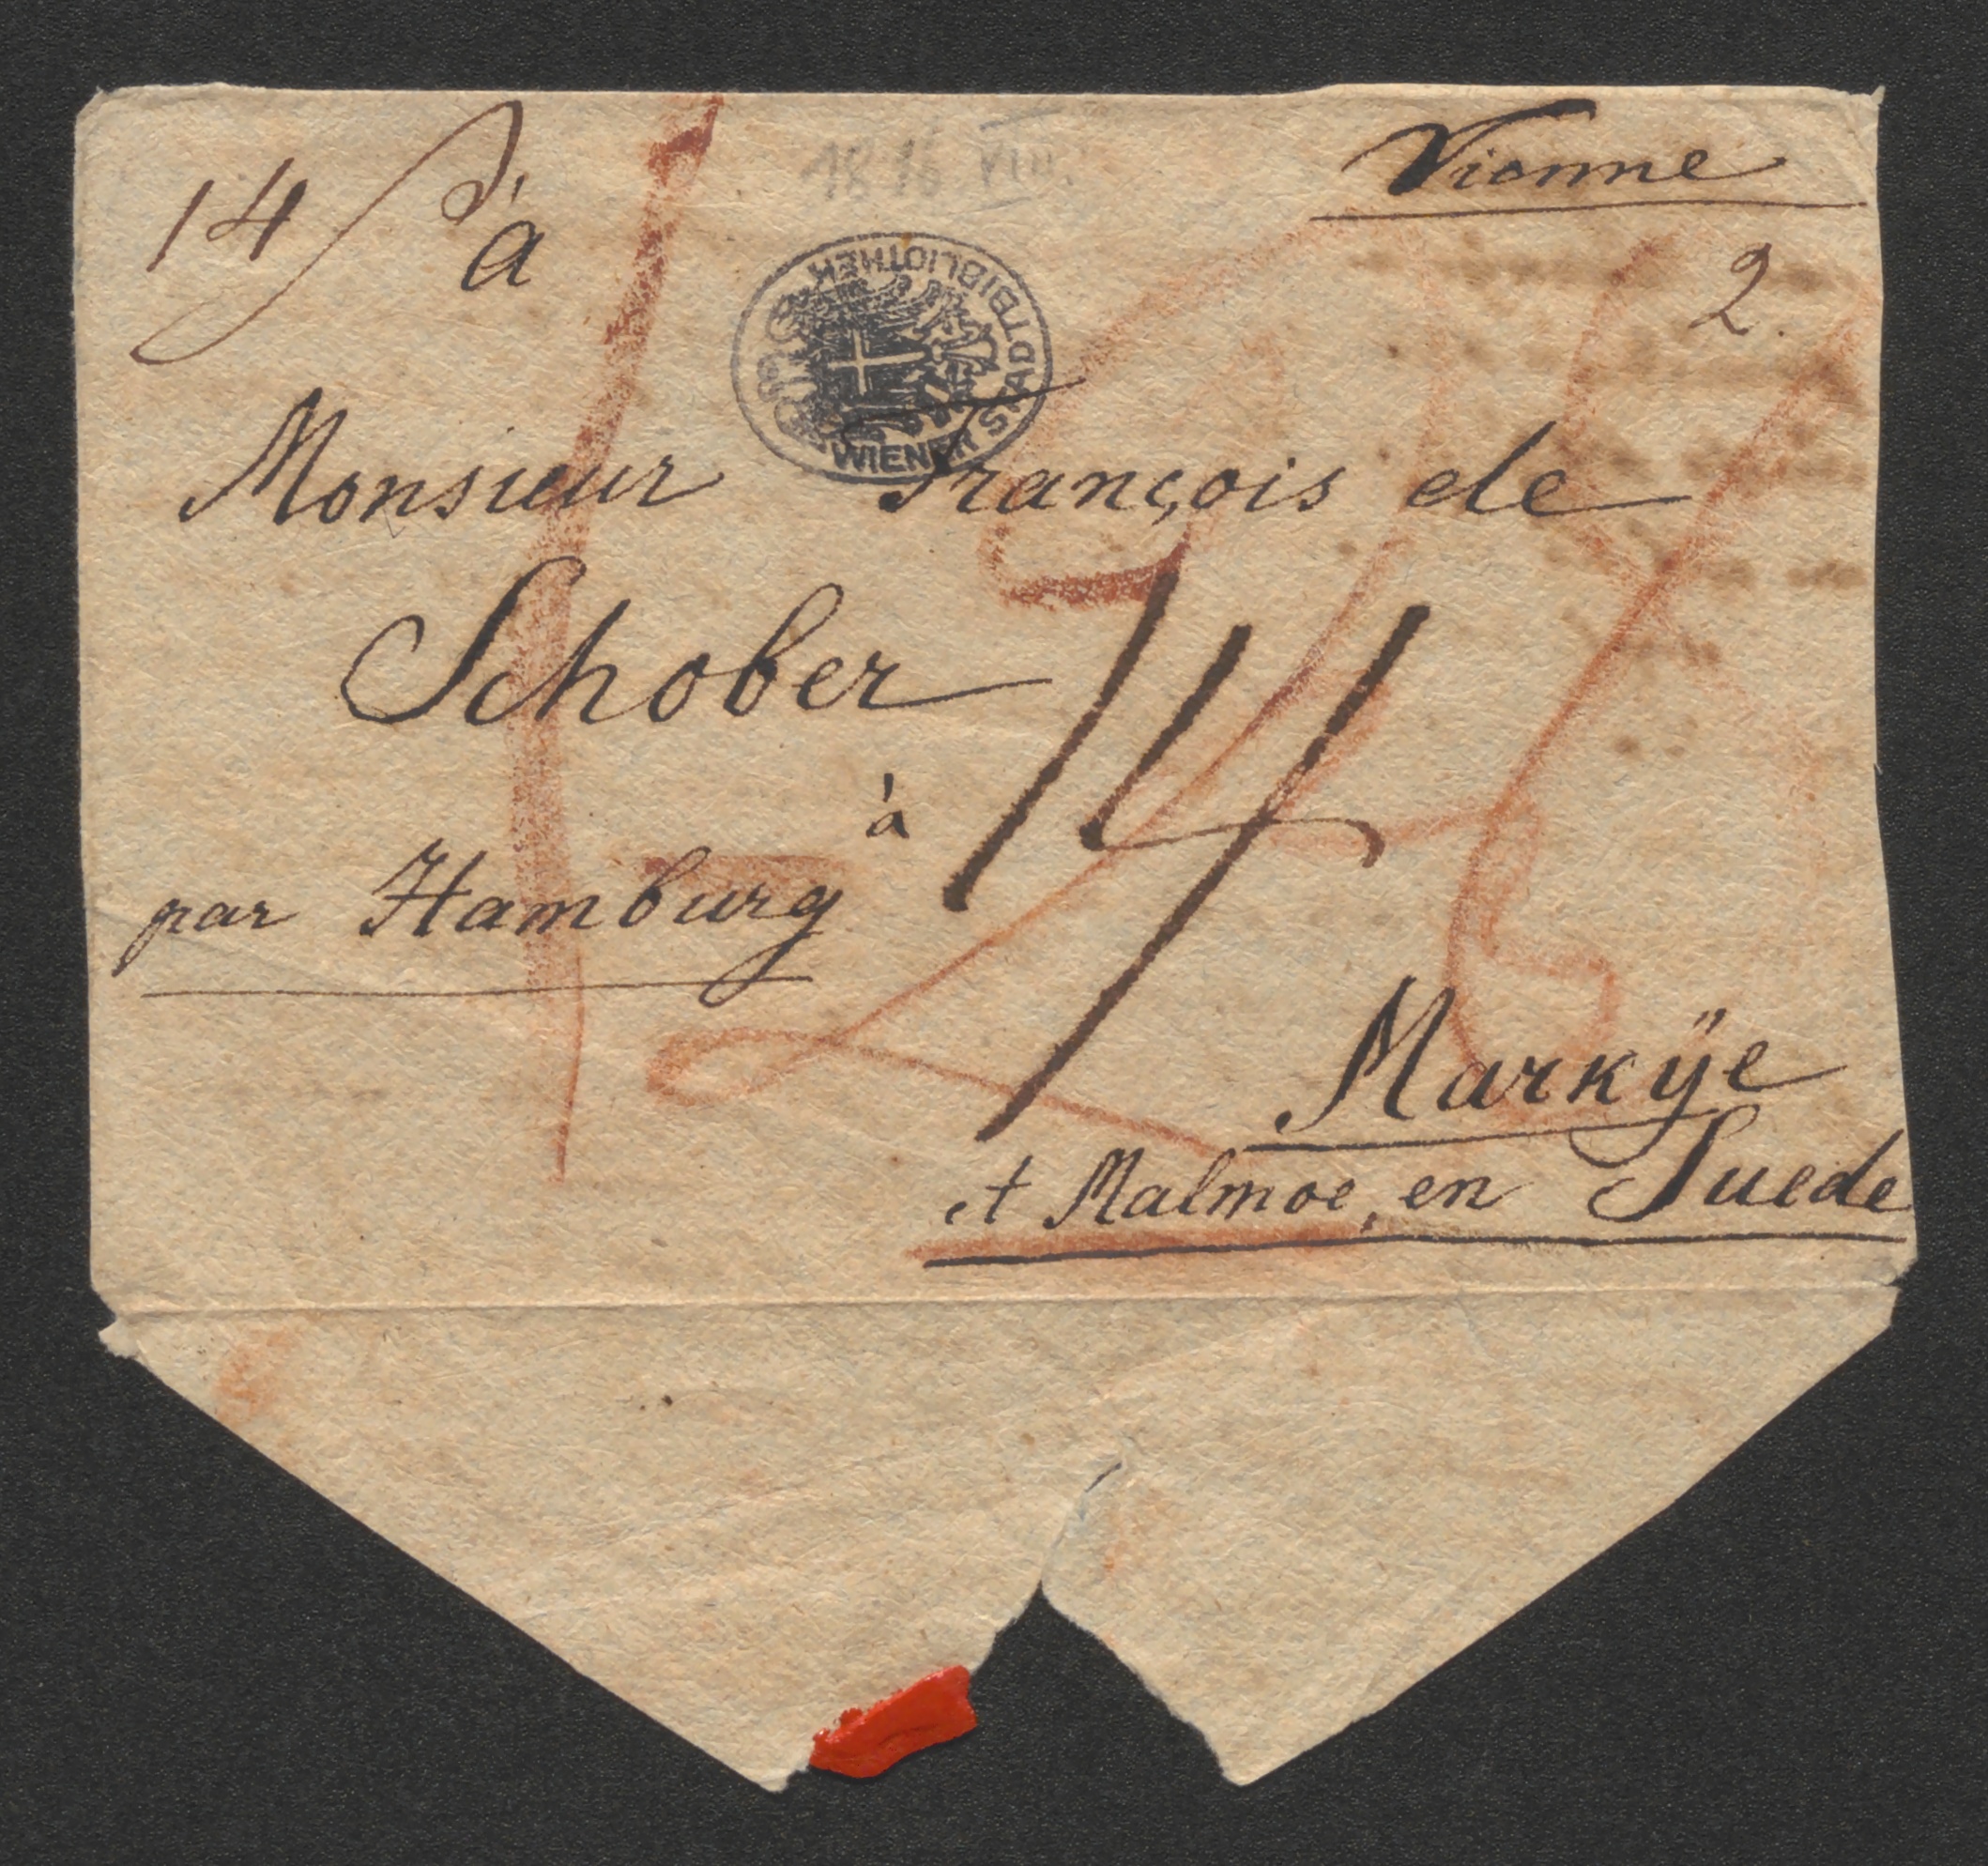 Vienne
1816 VIII.
14 à
2.
WIENER STADTBIBLIOTHEK
Monsieur François de
Schober
à
14
par Hamburg
Markÿe
et Malmoe, en Suede